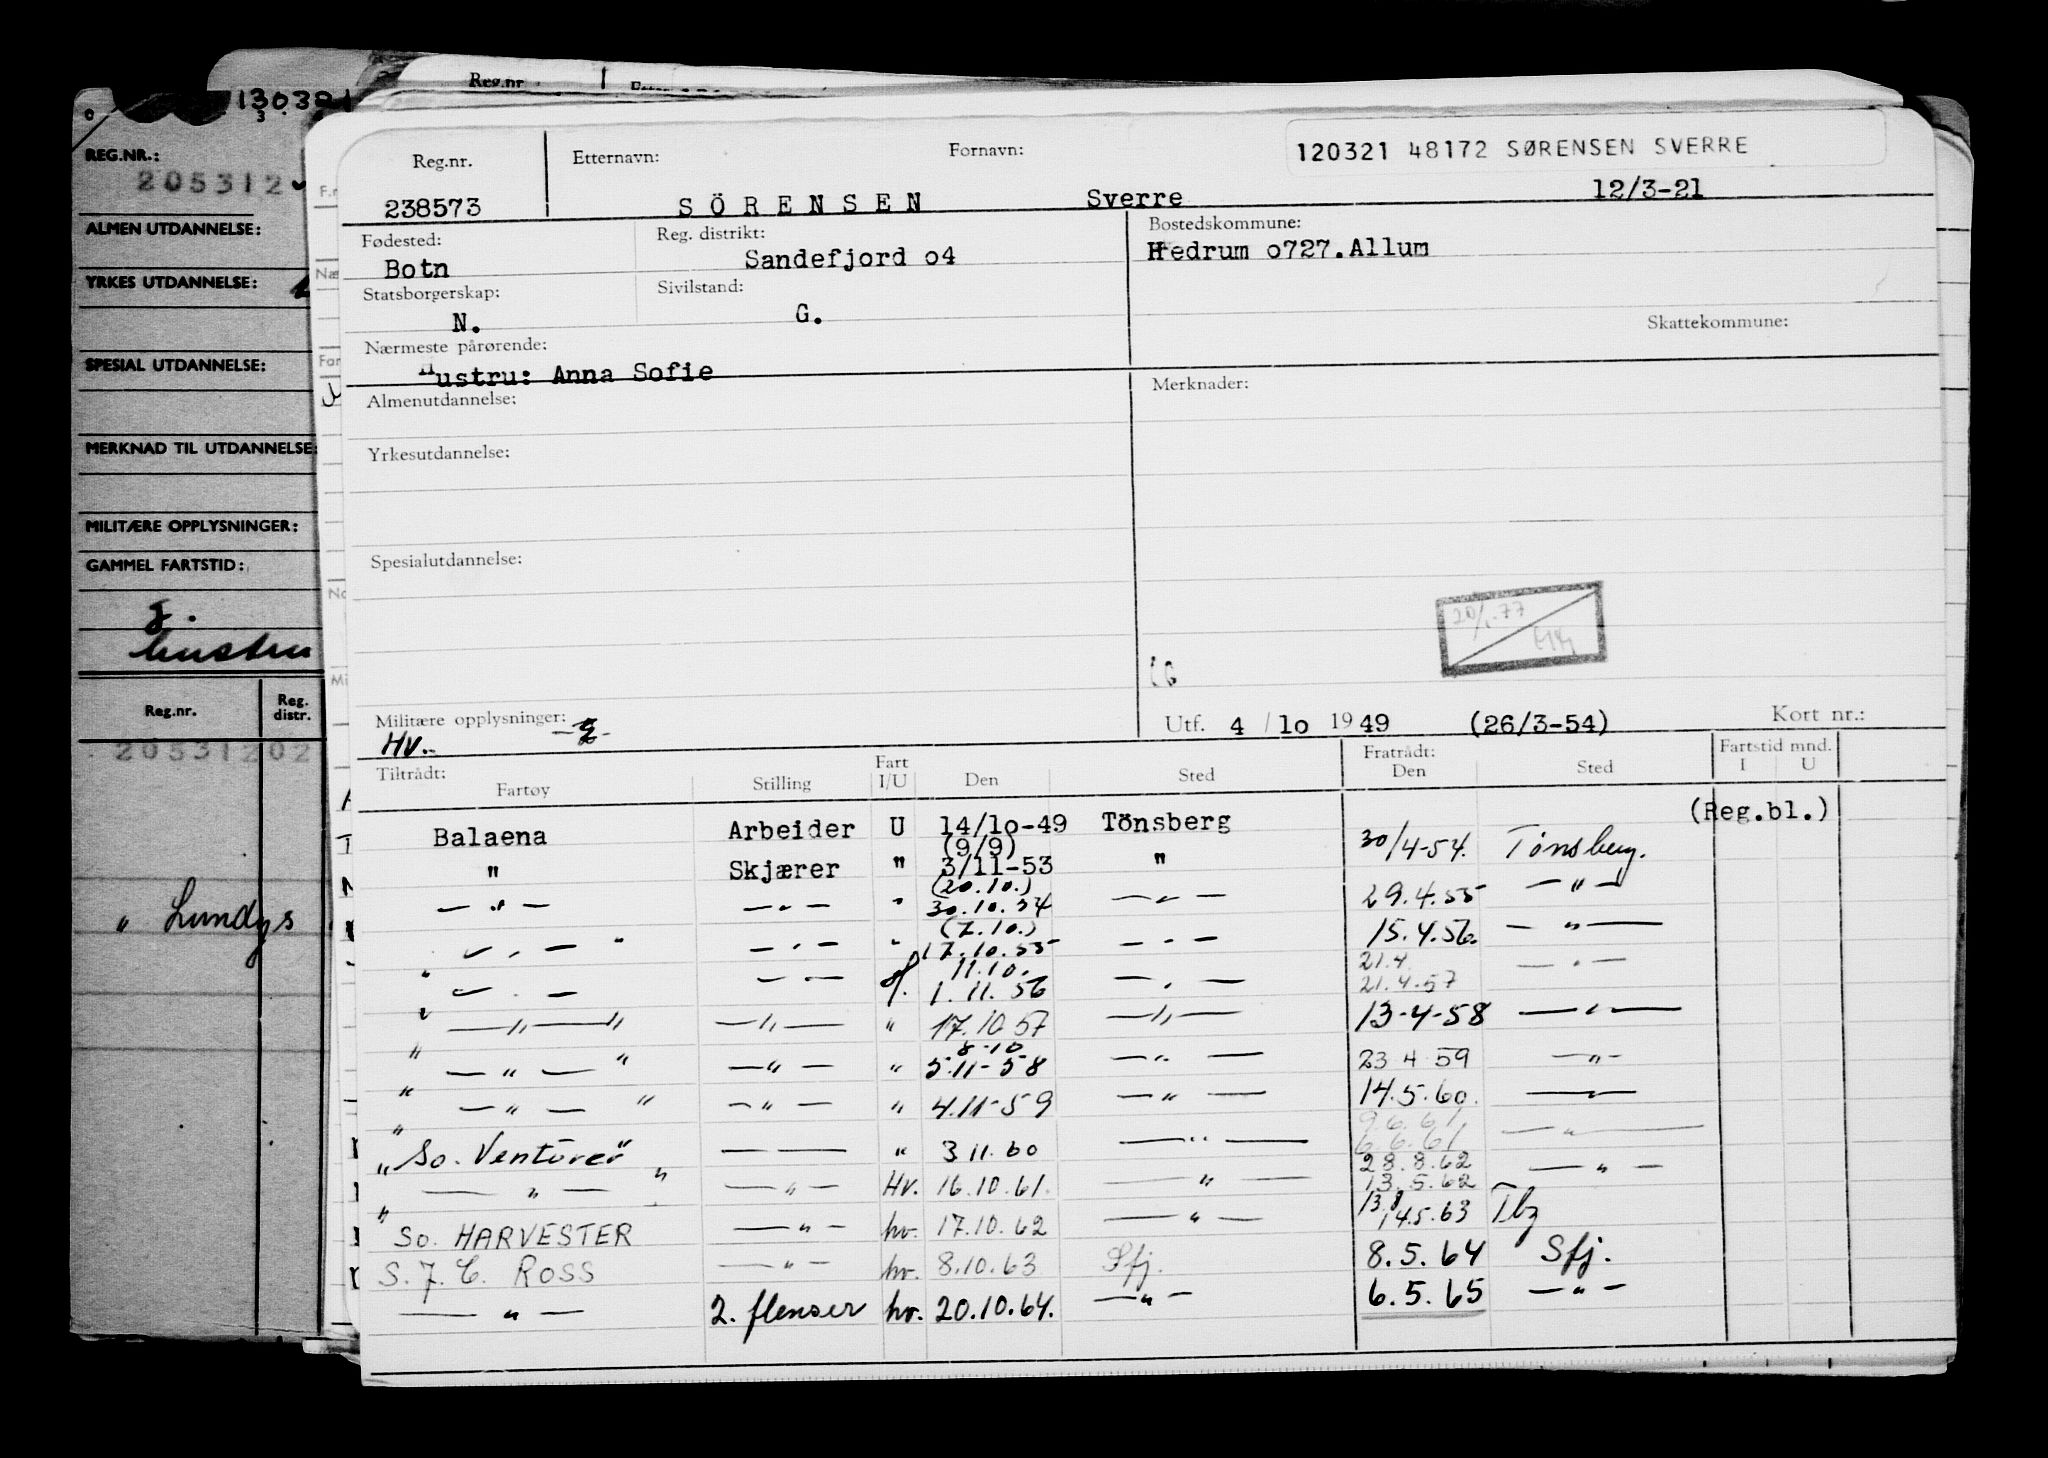 130321
Reg.nr.
REG.NR.:
205312
ALMEN UTDANNELSE:
YRKES UTDANNELSE:
SPESIAL UTDANNELSE:
MERKNAD TIL UTDANNELSE:
MILITÆRE OPPLYSNINGER:
GAMMEL FARTSTID:
g.
hustru
Reg.nr. Reg. distr.
20531202
" Lundys
120321 48172 SØRENSEN SVERRE
Reg.nr. Etternavn: Fornavn:
238573 SÖRENSEN Sverre 12/3-21
Fødested: Reg. distrikt: Bostedskommune:
Botn Sandefjord o4 Hedrum o727.Allum
Statsborgerskap: Sivilstand:
N. G.
Skattekommune:
Nærmeste pårørende:
Hustru: Anna Sofie
Almenutdannelse: Merknader:
Yrkesutdannelse:
Spesialutdannelse:
20/1-77
Militære opplysninger: Utf. 4 / lo 1949 (26/3-54) Kort nr.:
Hv.
Tiltrådt: Fartøy Stilling Fart I/U Den Sted Fratrådt: Den Sted Fartstid mnd. I U
(Reg.bl.)
Balaena Arbeider U 14/lo-49 Tönsberg
(9/9)
" Skjærer " 3/11-53 " 30/4-54. Tønsberg.
(20.10.)
— " — — " — " 30.10.54 — " — 29.4.55 — " —
(7.10.)
— " — " — " — " 17.10.55 — " — 15.4.56. — " —
11.10. 21.4.
" — " — — " — 1.11.56 — " — 21.4.57 — " —
" — " — " — " — " 17.10.57 — " — 13-4-58 — " —
8-10
" — " — " — " — " 5.11-58 — " — 23 4 59 — " —
" — " — " — " — " 4.11-59 — " — 14.5.60. — " —
9.6.61,
" So. Venturer" — — " 3 11.60 — " — 6.6.61, — " —
28.8.62
" — " — " — " — Hv. 16.10.61. — " — 13.5.62 — " —
" So. HARVESTER — " — hv. 17.10.62 — " — 14.5.63 Tbg
S. J. C. ROSS — " — hv. 8.10.63 Sfj. 8.5.64 Sfj.
— " — 2. flenser hv. 20.10.64. — " — 6.5.65 — " —